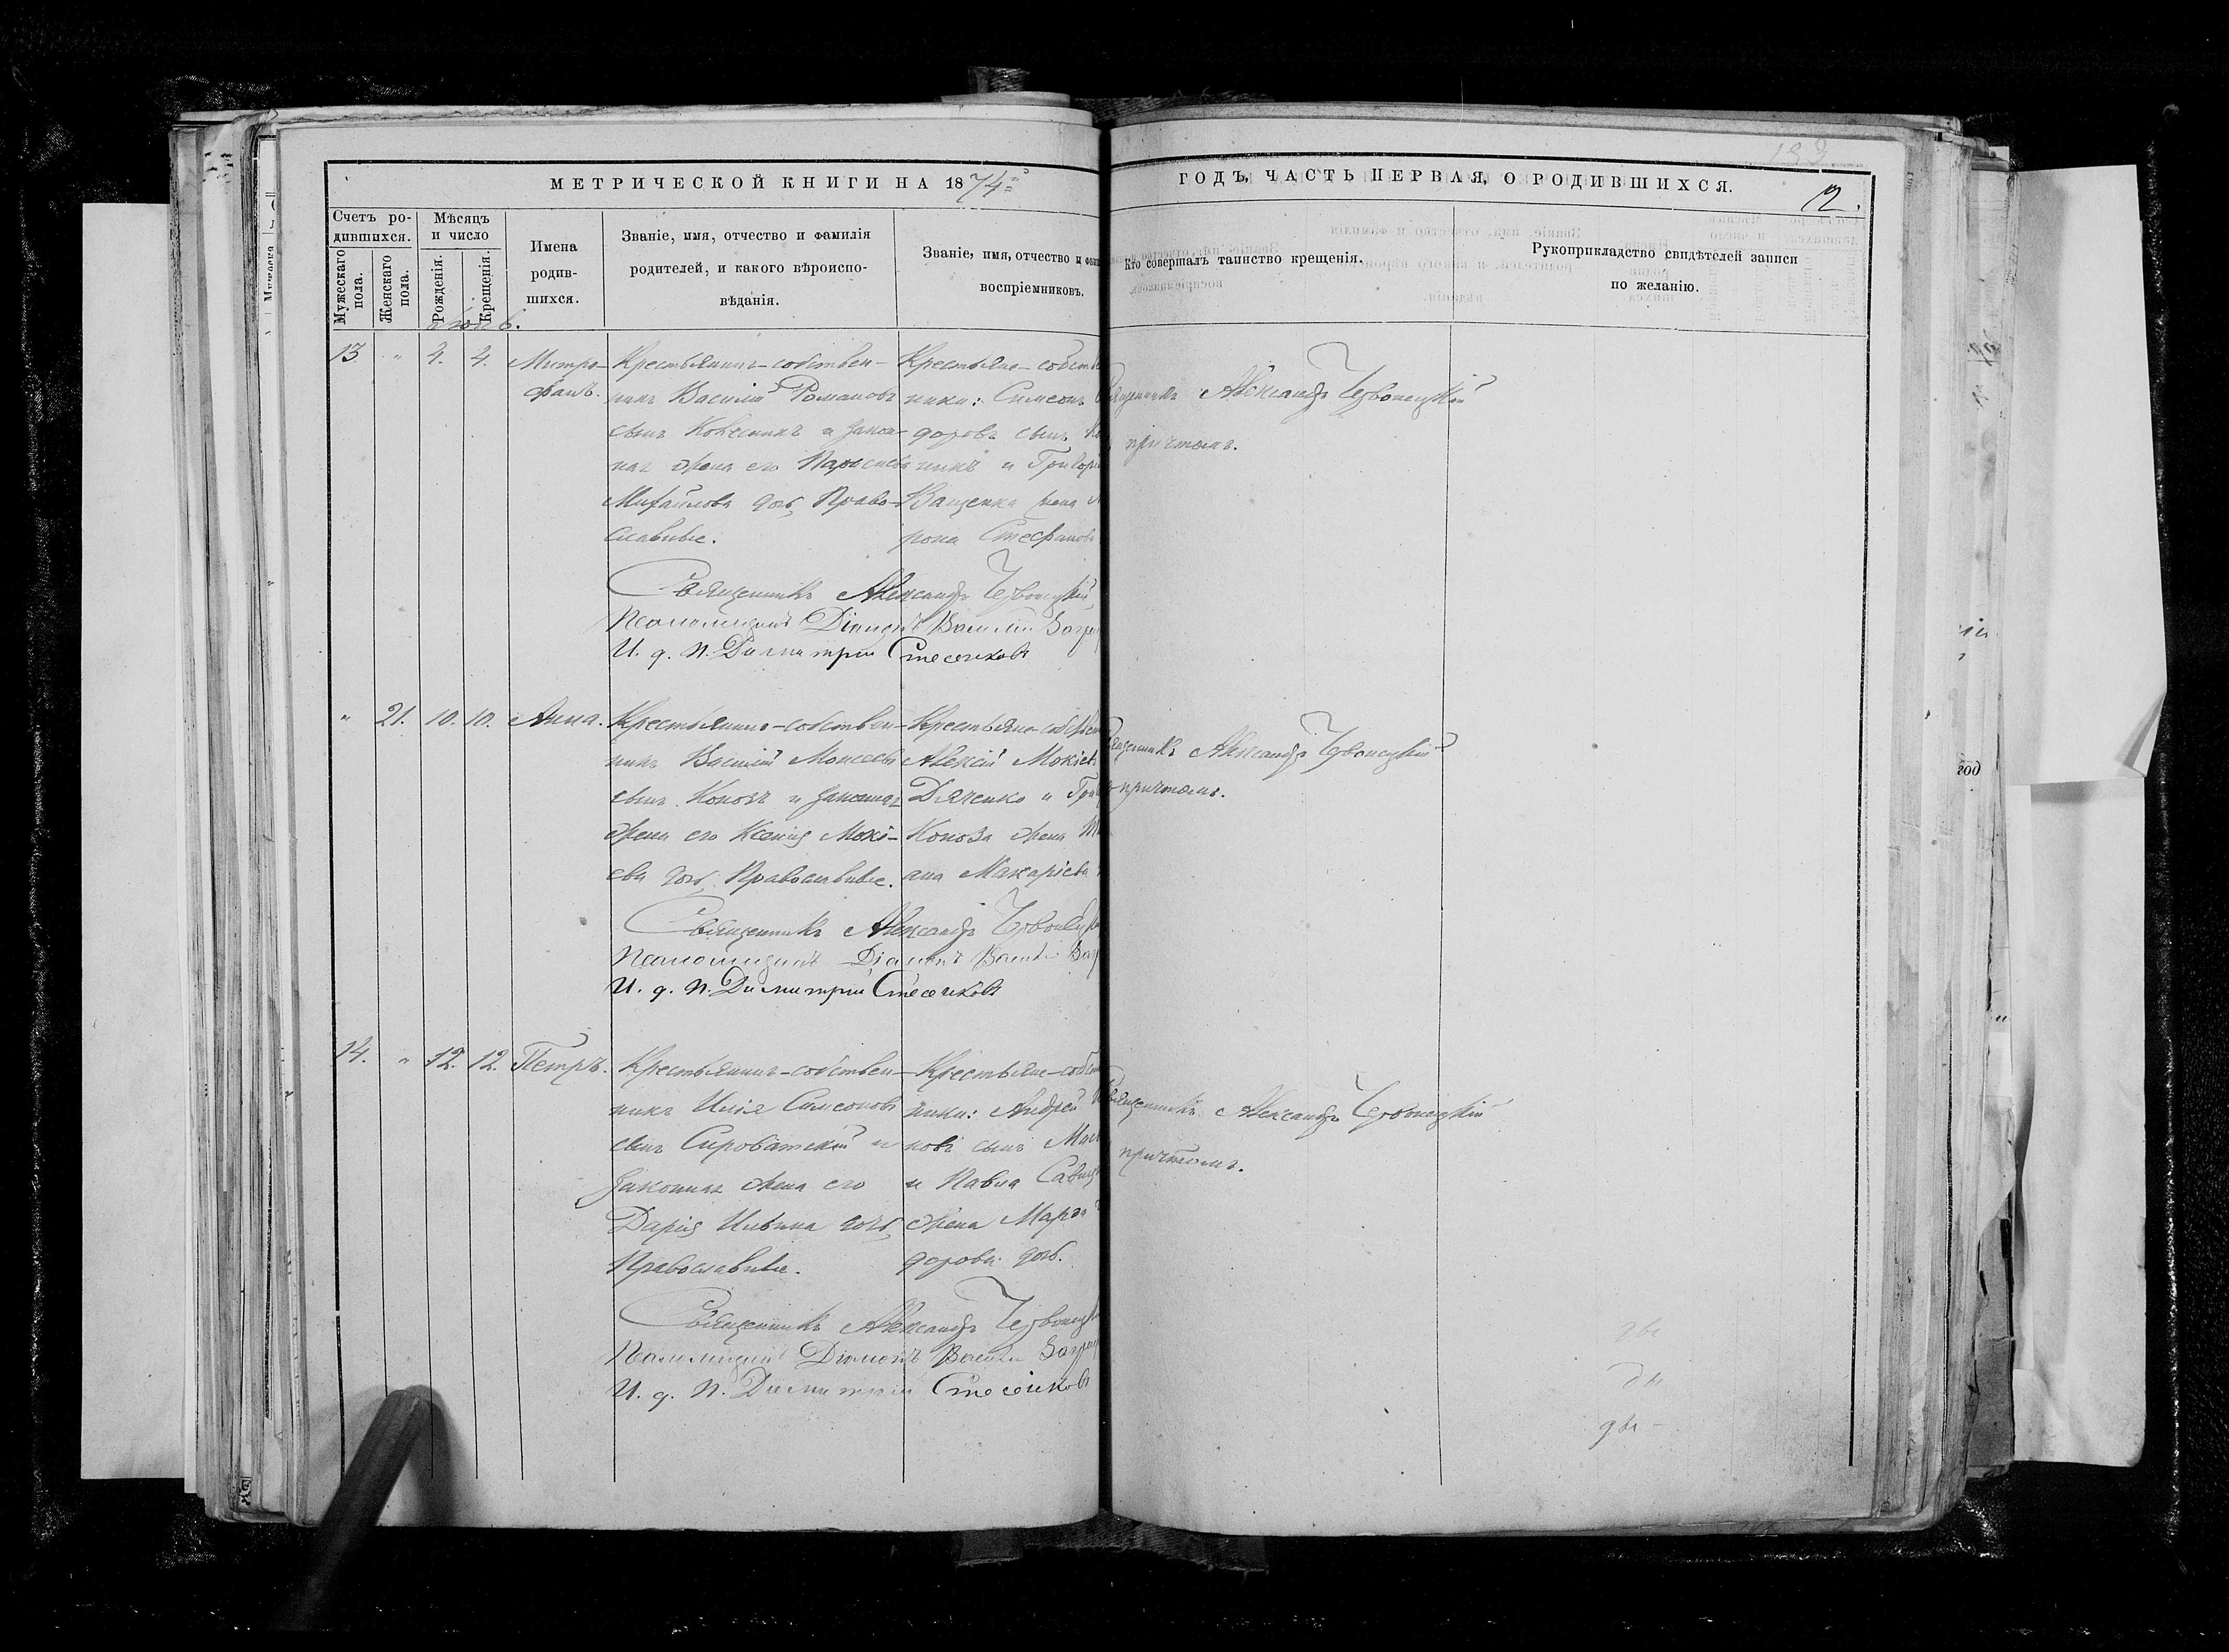 МЕТРИЧЕСКОЙ КНИГИ НА 1874
ГОДЪ, ЧАСТЬ ПЕРВАЯ, О РОДИВШИХСЯ.
Счетъ ро-
дившихся.
Мужескаго
пола.
Женскаго
пола.
Мѣсяцъ
и число
Рожденія.
Крещенія.
Имена
родив-
шихся.
Званіе, имя, отчество и фамилія
родителей, и какого вѣроиспо-
вѣданія.
Званіе, имя, отчество и
воспріемниковъ.
Кто совершалъ таинство крещенія.
Рукоприкладство свидѣтелей записи
по желанію.
13 " 4. 4. Митро-
фанъ.
Крестьянинъ-собствен-
никъ Василій Романовъ
сынъ Колесникъ и закон-
ная жена его
Михайлова дочь, Право-
славные.
Крестьяне-собств
ники: Симеонъ
доровъ сынъ
никъ и Григорі
Ващенка жена
рона Стефанов
Священникъ Александръ Червонецкій
причтомъ.
Священникъ Александръ Червонецкій
Псаломщикъ Діаконъ Василій
И. д. П. Димитрій Стесенковъ
" 21. 10. 10. Анна.
Крестьянинъ-собствен-
никъ Василій Моисеевъ
сынъ Конозъ и законная
жена его Ксенія Мокі-
ева дочь, Православные.
Крестьяне-собствен
Алексій Мокіевъ
Дяченко и Гри
Коноза жена
ана Макаріева
Священникъ Александръ Червонецкій
причтомъ.
Священникъ Александръ Червонецк
Псаломщикъ Діаконъ Василій
И. д. П. Димитрій Стесенковъ
14. " 12. 12. Петръ.
Крестьянинъ-собствен-
никъ Илія Симеоновъ
сынъ Сироватскій и
законная жена его
Дарія Ильина дочь,
Православные.
Крестьяне-собств
ники: Андрей
новъ сынъ
и Павла
жена Марѳа
дорова дочь.
Священникъ Александръ Червонецкій
причтомъ.
Священникъ Александръ Червонецк
Псаломщикъ Діаконъ Василій
И. д. П. Димитрій Стесенковъ